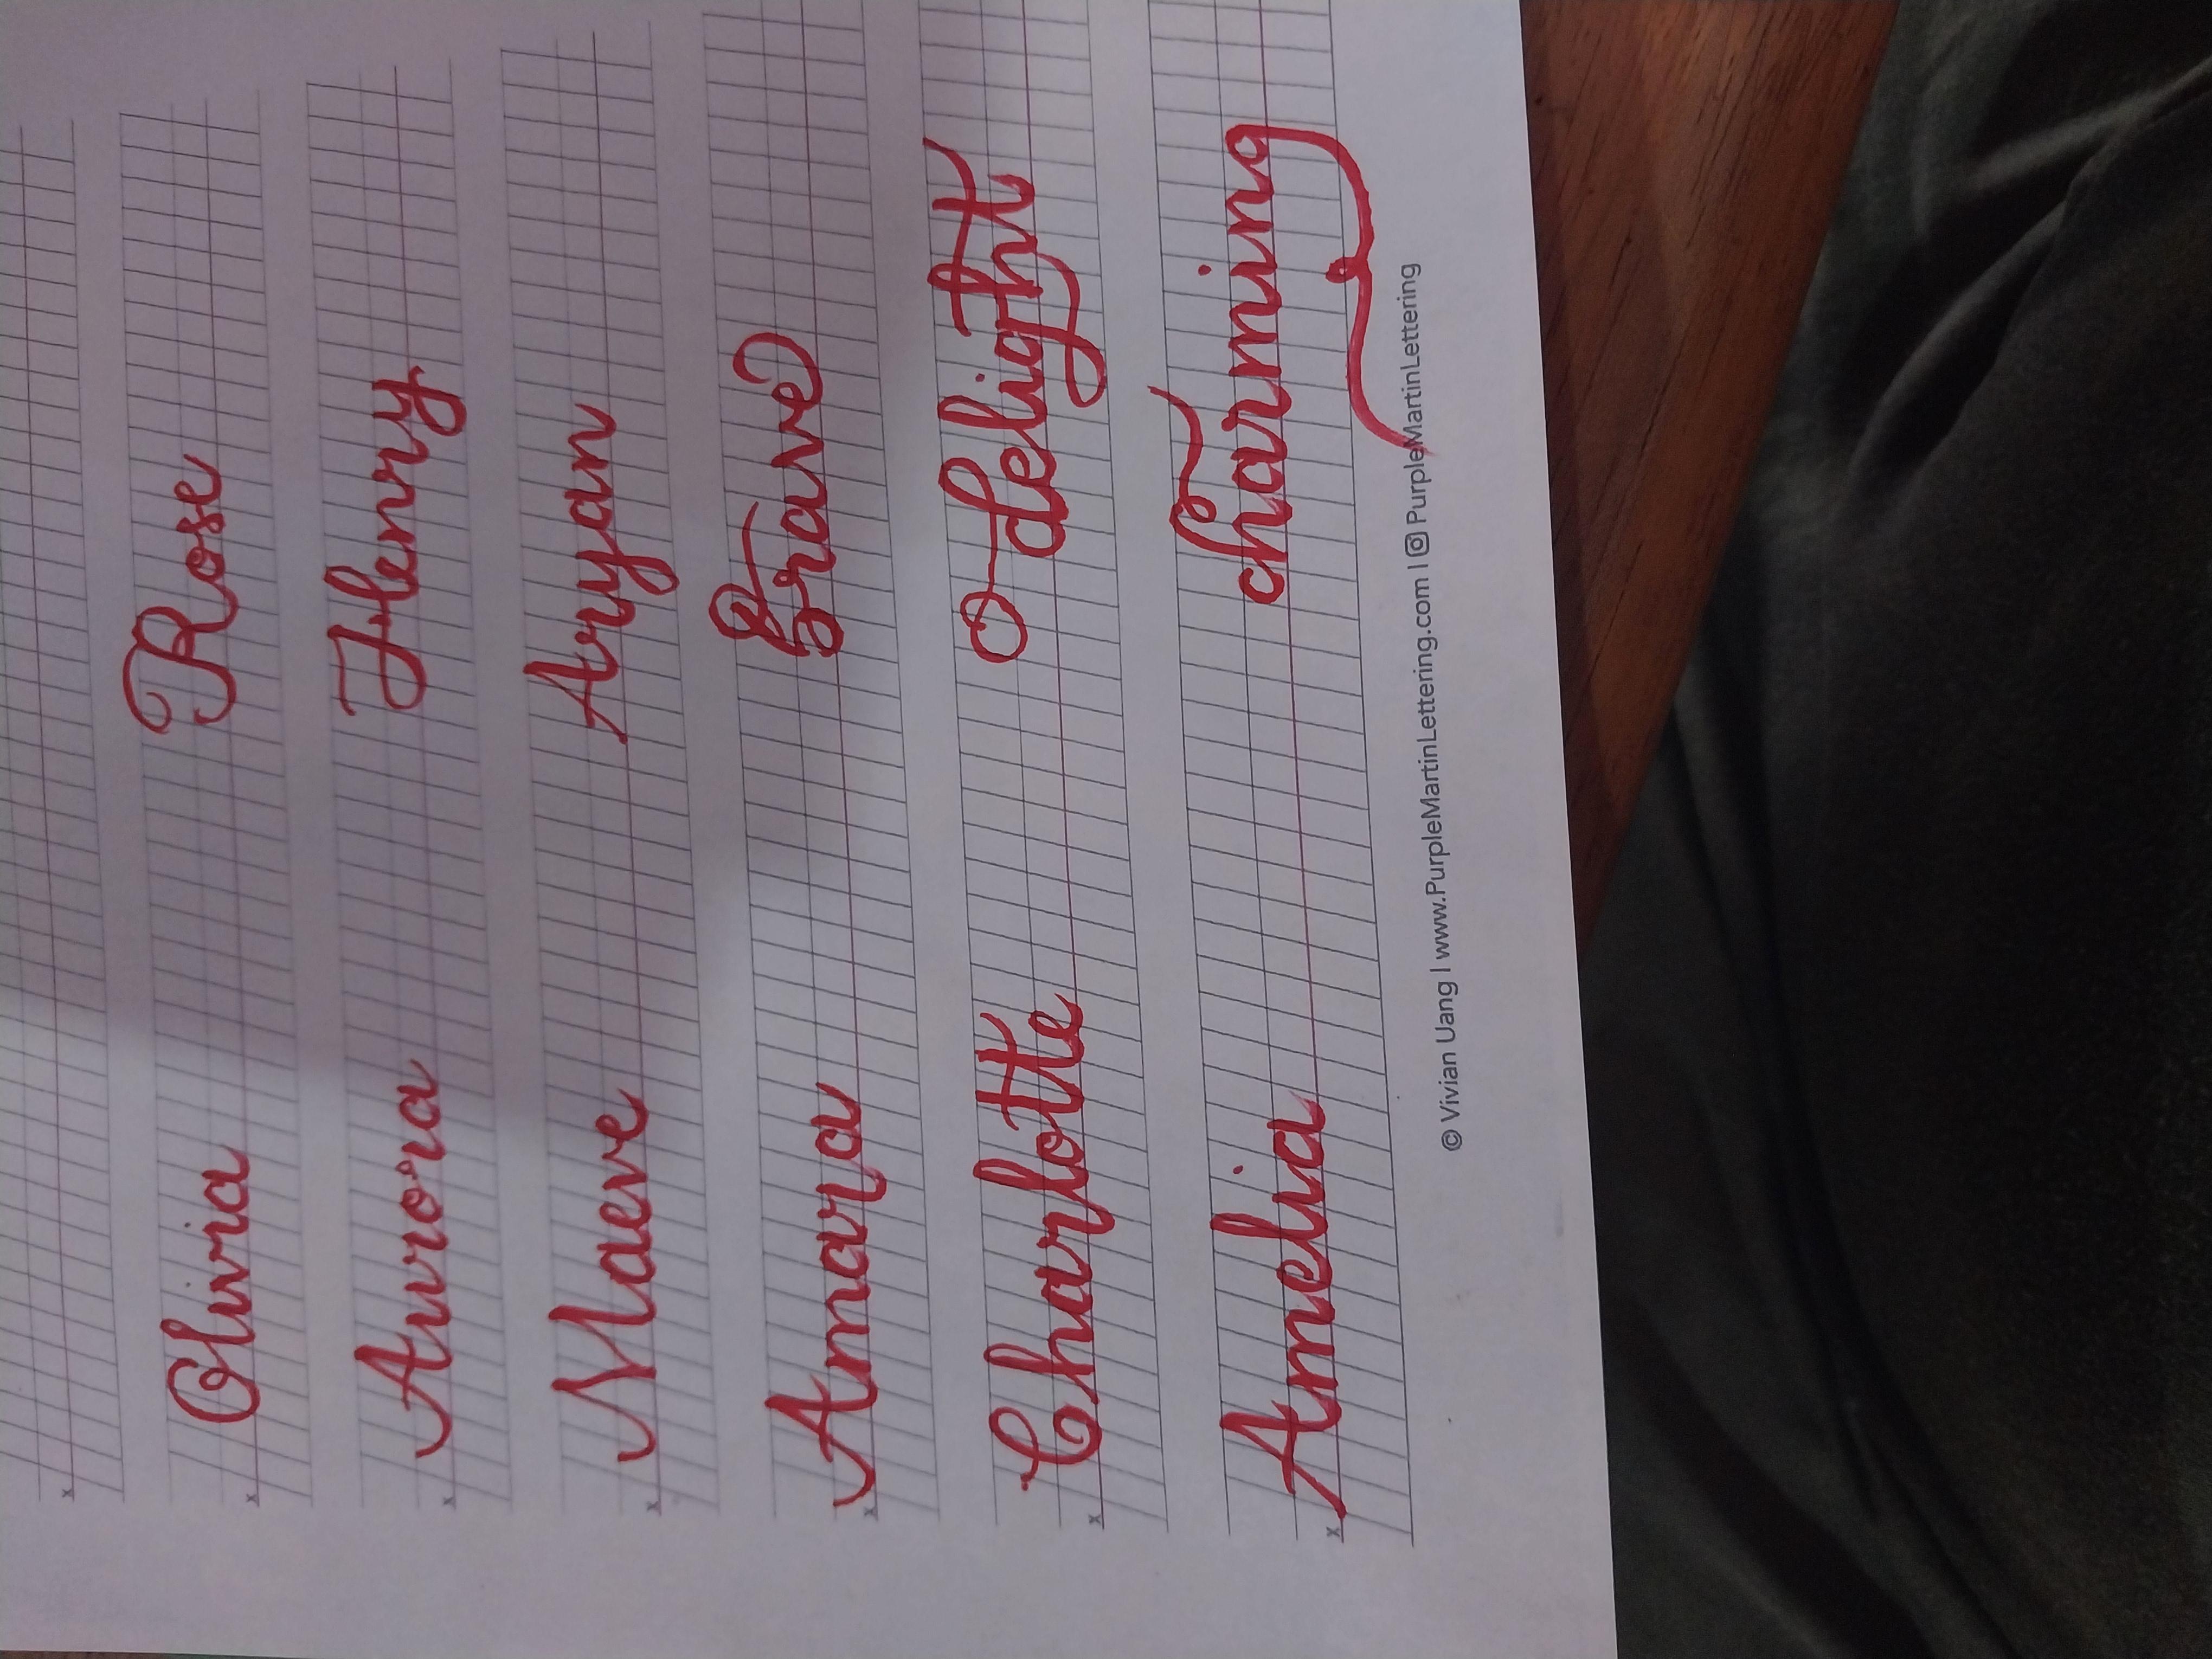 Olivia Rose
Aurora Henry
Maeve Aryan
Amara Brave
Charlotte delight
Amelia charming
© Vivian Uang | www.PurpleMartinLettering.com | PurpleMartinLettering